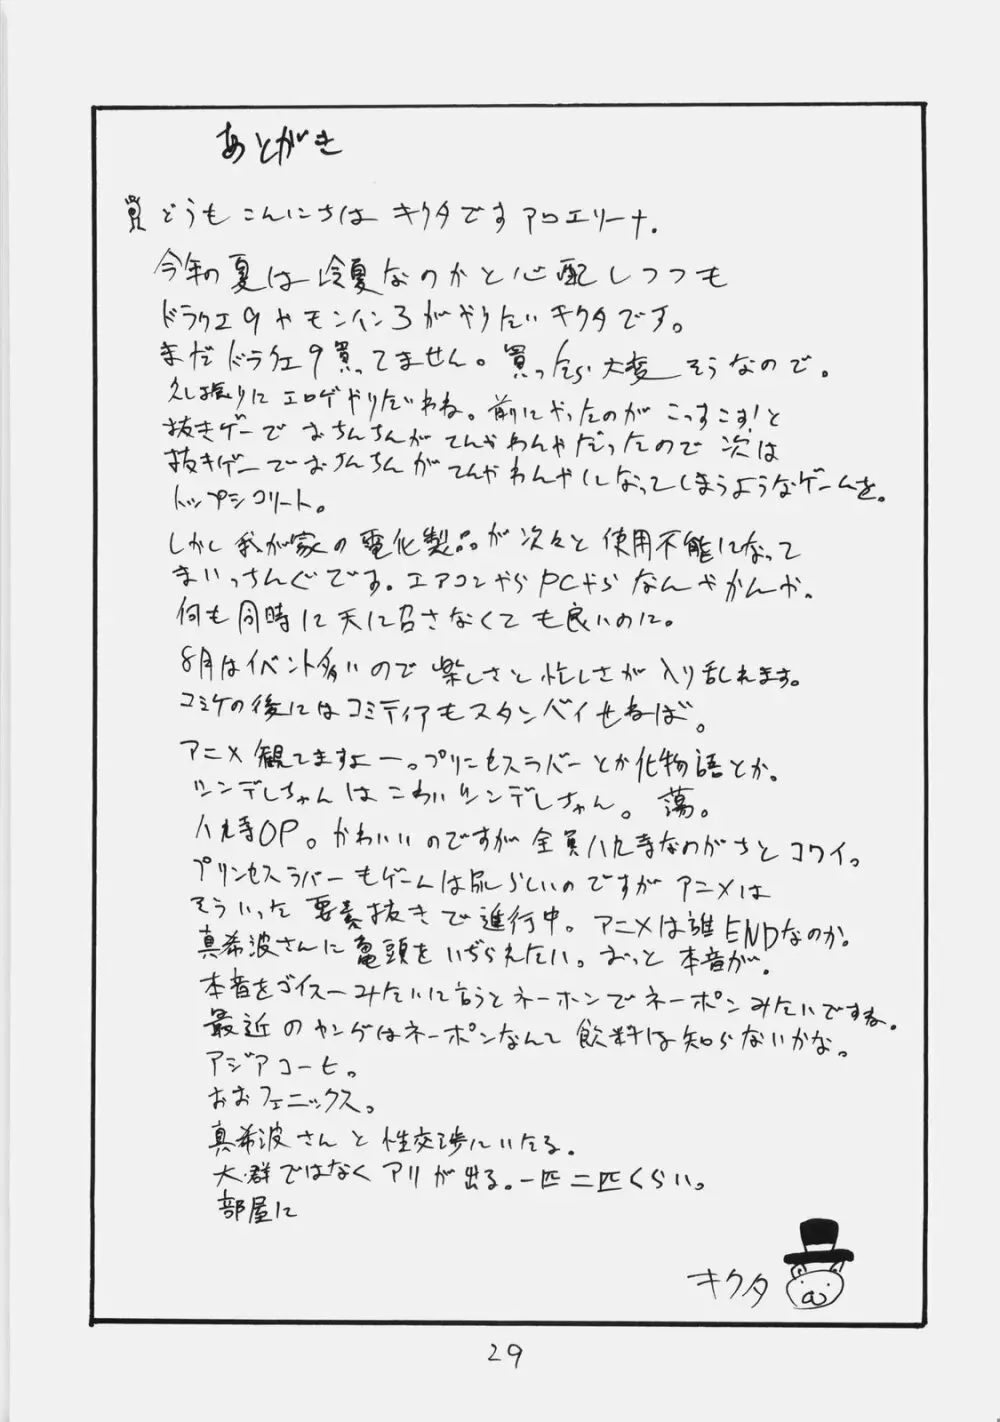 あとがき
どうもこんにちは キクタです アロエリーナ.
今年の夏は冷夏なのかと心配しつつも
ドラクエ9やモンハン3がやりたいキクタです。
まだドラクエ9買ってません。買ったら大変そうなので。
久し振りにエロゲやりたいわね。前にやったのがこっすこす!と
抜きゲーでおちんちんがてんやわんやだったので次は
抜きゲーでおちんちんがてんやわんやになってしまうようなゲームを。
トップシコリート。
しかし我が家の電化製品が次々と使用不能になって
まいっちんぐです。エアコンやらPCやらなんやかんか。
何も同時に天に召さなくても良いのに。
8月はイベント多いので楽しさと忙しさが入り乱れます。
コミケの後にはコミティアもスタンバイせねば。
アニメ観てますよー。プリンセスラバーとか化物語とか。
ツンデレちゃんはこわいツンデレちゃん。蕩。
八九寺OP。かわいいのですが全員八九寺なのがちとコワイ。
プリンセスラバーもゲームは尿らしいのですがアニメは
そういった要素抜きで進行中。アニメは誰ENDなのか。
真希波さんに亀頭をいぢらえたい。おっと本音が。
本音をゴイスーみたいに言うとネーホンでネーポンみたいですね。
最近のヤングはネーポンなんて飲料は知らないかな。
アジアコーヒ。
おおフェニックス。
真希波さんと性交渉にいたる。
大群ではなくアリが出る。一匹二匹くらい。
部屋に
キクタ
29